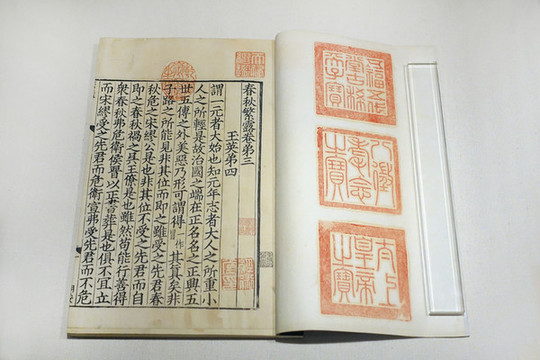 春秋繁露卷第三
王英第四
謂一元者大始也知元年志者大人之所重小
人之所輕是故治國之端在正名名之正興五
世五傳之外美惡乃形可謂得其真矣非
子路之所能見非其位而即之雖受之先君春
秋危之宋繆公是也非其位不受之先君而自
即之春秋禍之吳王僚是也雖然苟能行善得
衆春秋弗危衛侯晉以正書葬是也俱不宜立
而宋繆受之先君而危衛宣弗受先君而不危
五福五代堂古稀天子寶
八徵耄念之寶
太上皇帝之寶